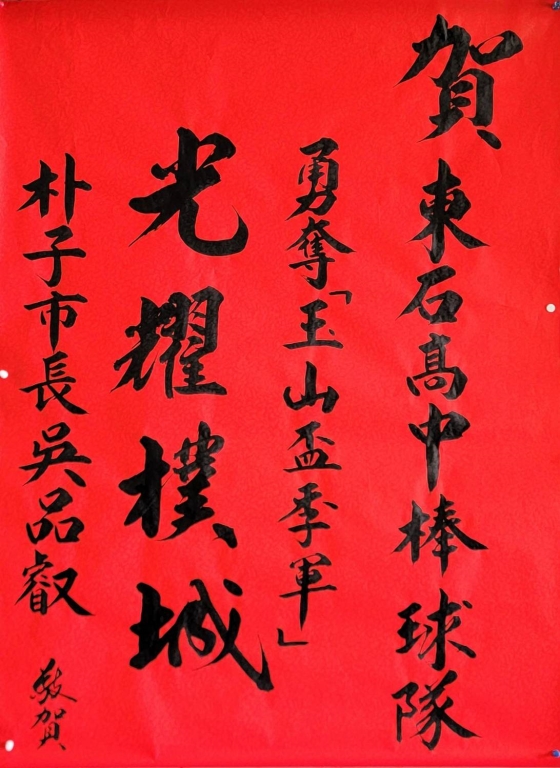 賀東石高中棒球隊
勇奪「玉山盃季軍」
光耀樸城
朴子市長吳品叡
敬賀